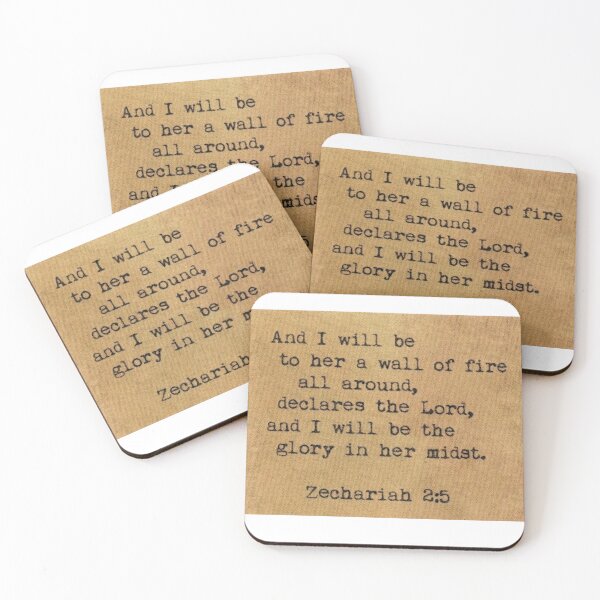 And I will be
to her a wall of fire
all around,
declares the Lord,
and I will be the
mids
And I will be
to her a wall of fire
all around,
declares the Lord,
and I will be the
glory in her midst.
And I will be
to her a wall of fire
all around,
declares the Lord,
and I will be the
glory in her m
Zechariah
And I will be
to her a wall of fire
all around,
declares the Lord,
and I will be the
glory in her midst.
Zechariah 2:5